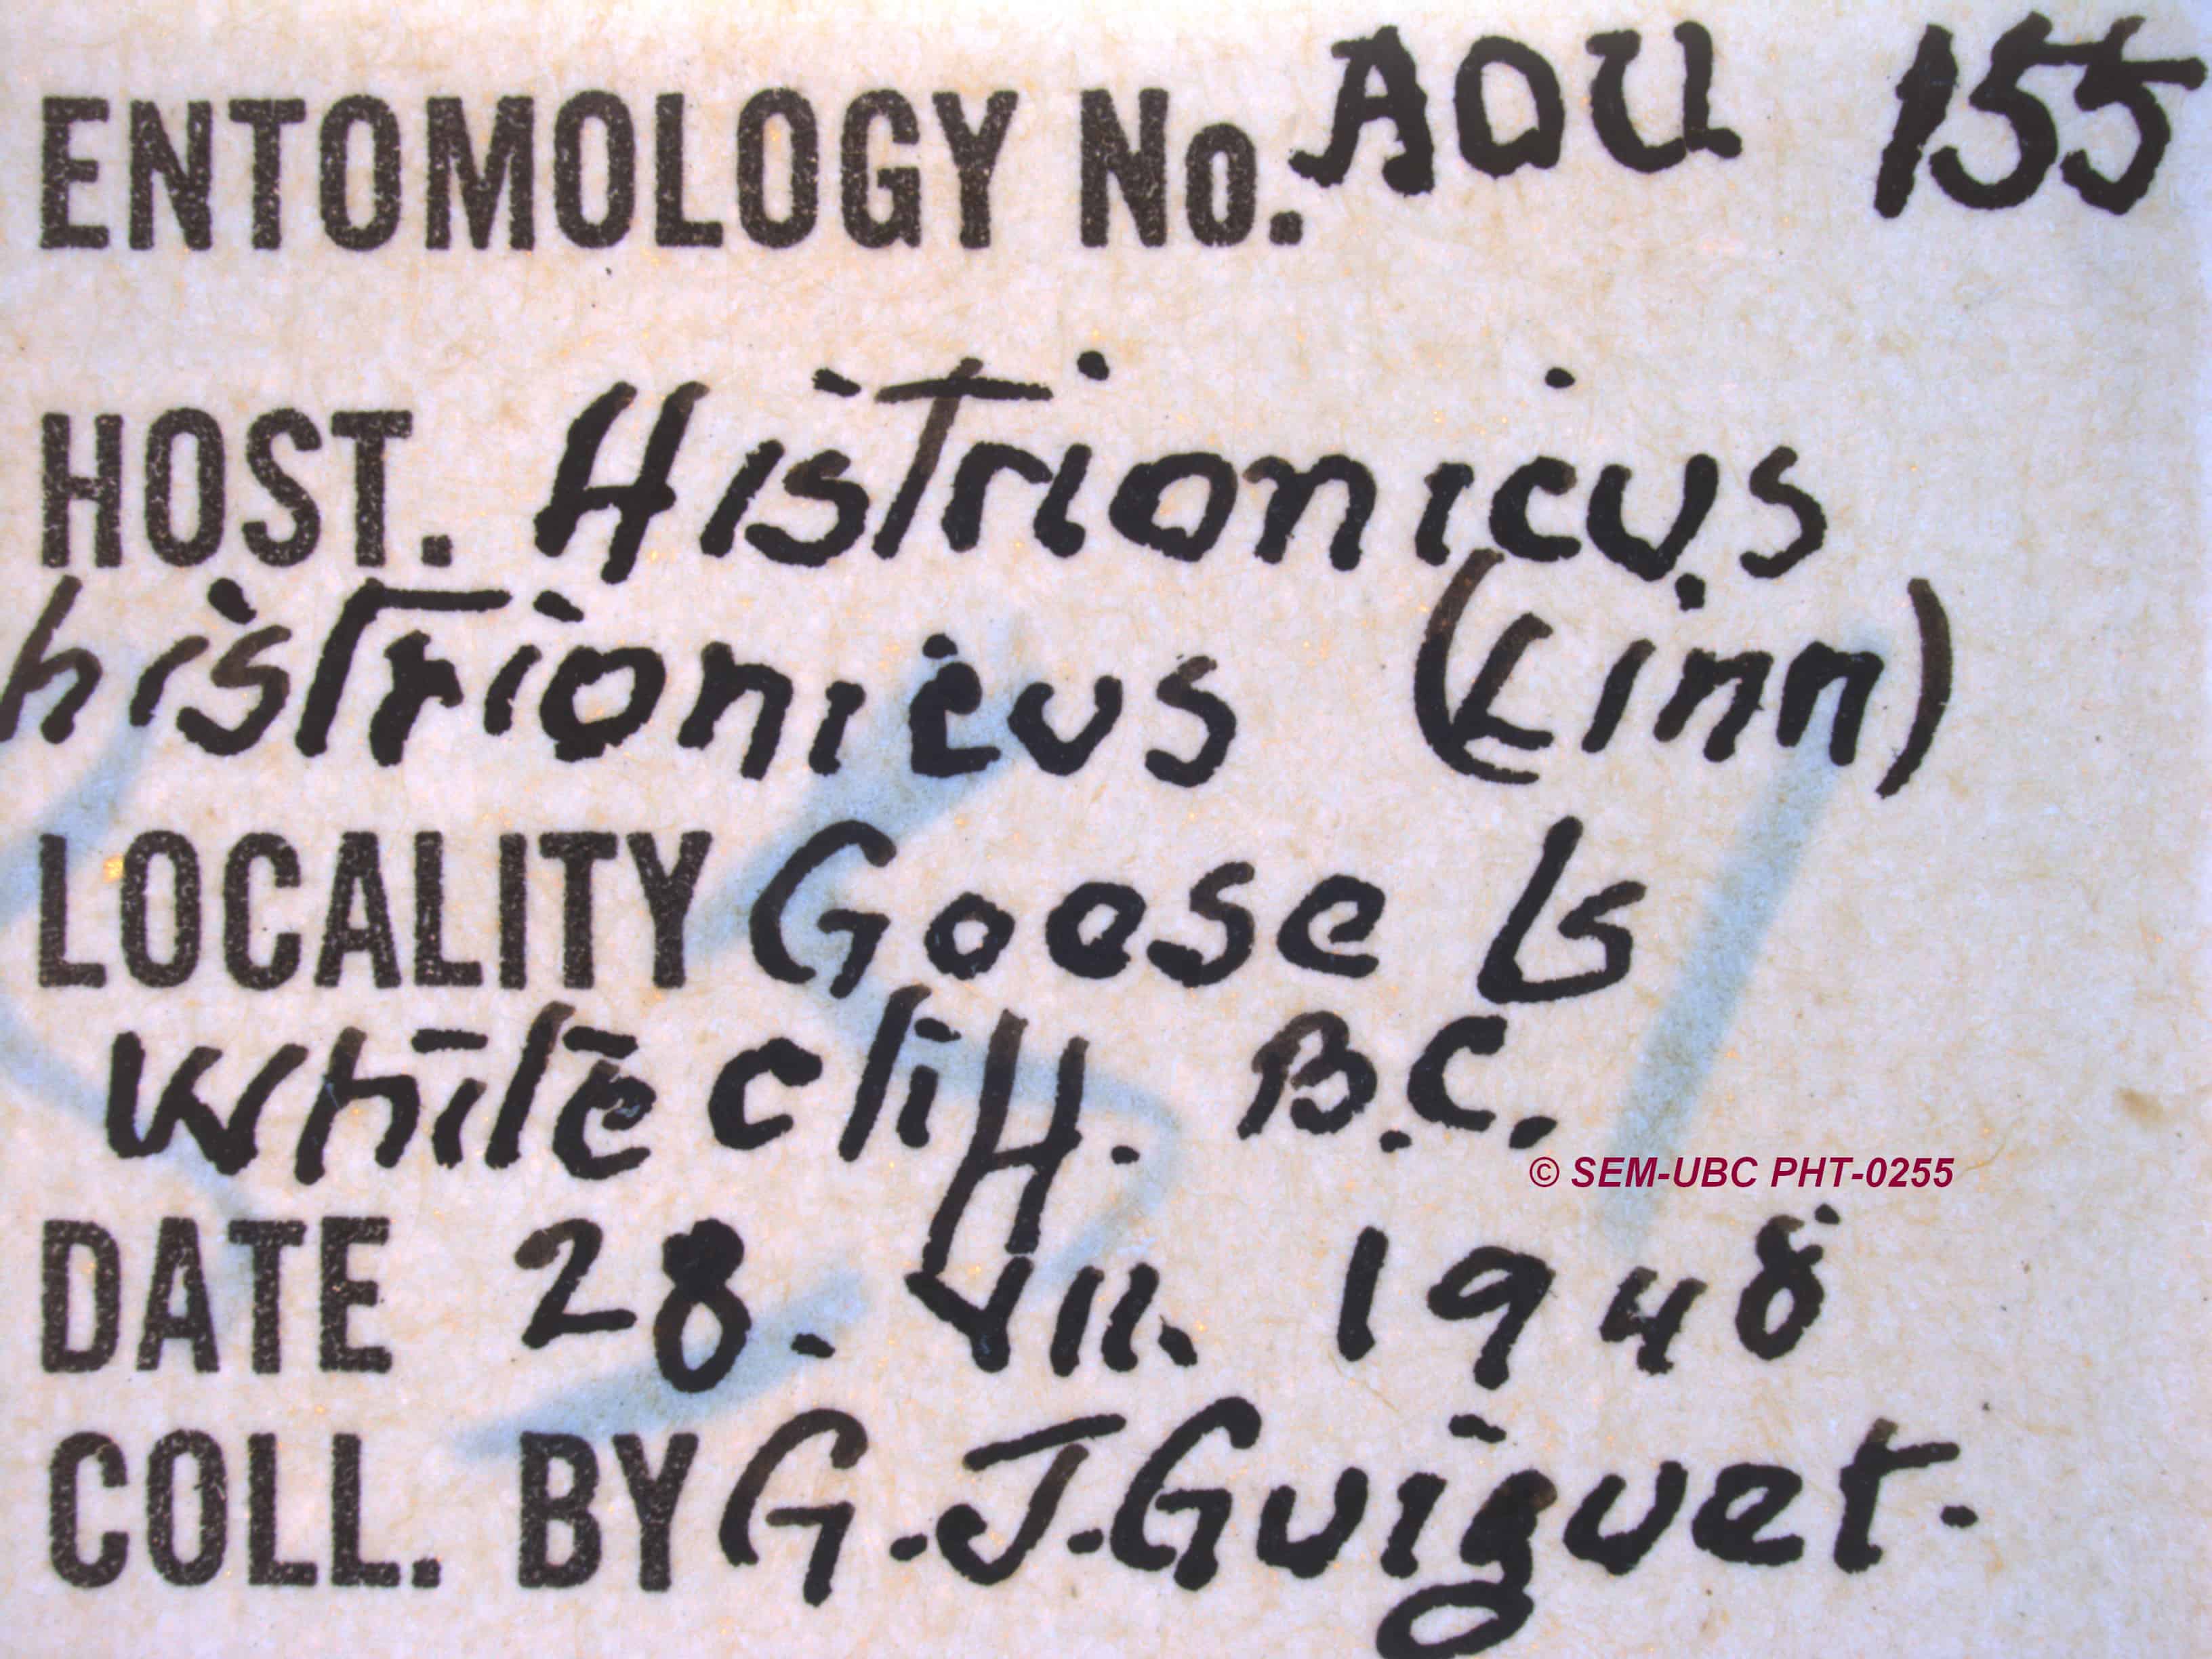 ENTOMOLOGY No. AOU 155
HOST. Histrionicus
histrionicus (Linn)
LOCALITY Goose Is
white cliff. B.C.
© SEM-UBC PHT-0255
DATE 28. VII. 1948
COLL. BY G.J.Guiguet.